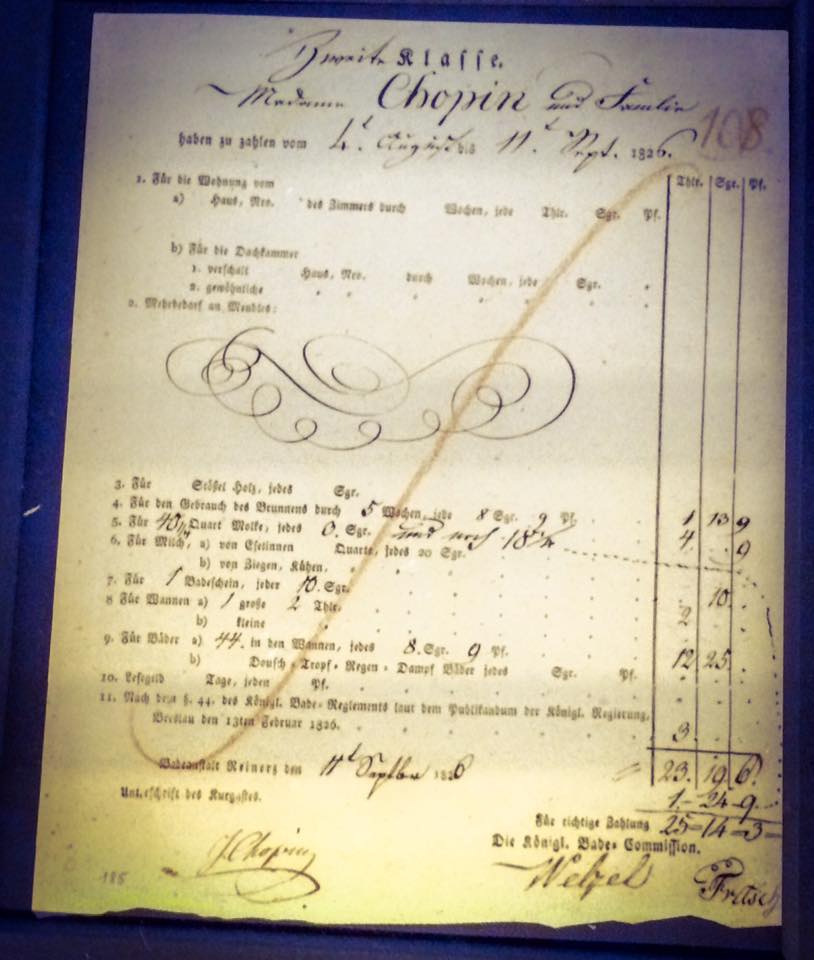 Zweite Klasse.
Madame Chopin und Familie
108
haben zu zahlen vom 4t. August bis 11t. Sept. 1826.
Thlr. Sgr. Pf.
1. Für die Wohnung vom
a) Haus, Nro. des Zimmers durch Wochen, jede Thlr. Sgr. Pf.
b) Für die Dachkammer
1. verschalt Haus, Nro. durch Wochen, jede Sgr.
2. gewöhnliche " " " "
2. Mehrbedarf an Meubles:
3. Für Stößel Holz, jedes Sgr.
4. Für den Gebrauch des Brunnens durch 5 Wochen, jede 8 Sgr. 9 Pf. 1 13 9
5. Für 40 Quart Molke, jedes Sgr. und noch 4 . 9
6. Für Milch, a) von Eselinnen Quarte, jedes 20 Sgr.
b) von Ziegen, Kühen.
7. Für 1 Badeschein, jeder 10. Sgr. 10.
8 Für Wannen a) 1 große 2 Thlr. 2
b) kleine
9. Für Bäder a) 44. in den Wannen, jedes 8. Sgr. 9 Pf. 12 25
b) Dousch-Tropf-Regen-Dampf Bäder jedes Sgr. Pf.
10. Lesegeld Tage, jeden Pf.
11. Nach dem §. 44. des Königl. Bade-Reglements laut dem Publikandum der Königl. Regierung.
Breslau den 13ten Februar 1826. 3.
Badeanstalt Reinerz den 11t September 1826 23. 19 6.
Unterschrift des Kurgastes. 1.-24-9.
Für richtige Zahlung 25-14-3
Die Königl. Bade-Commission.
Chopin
Welzel
185